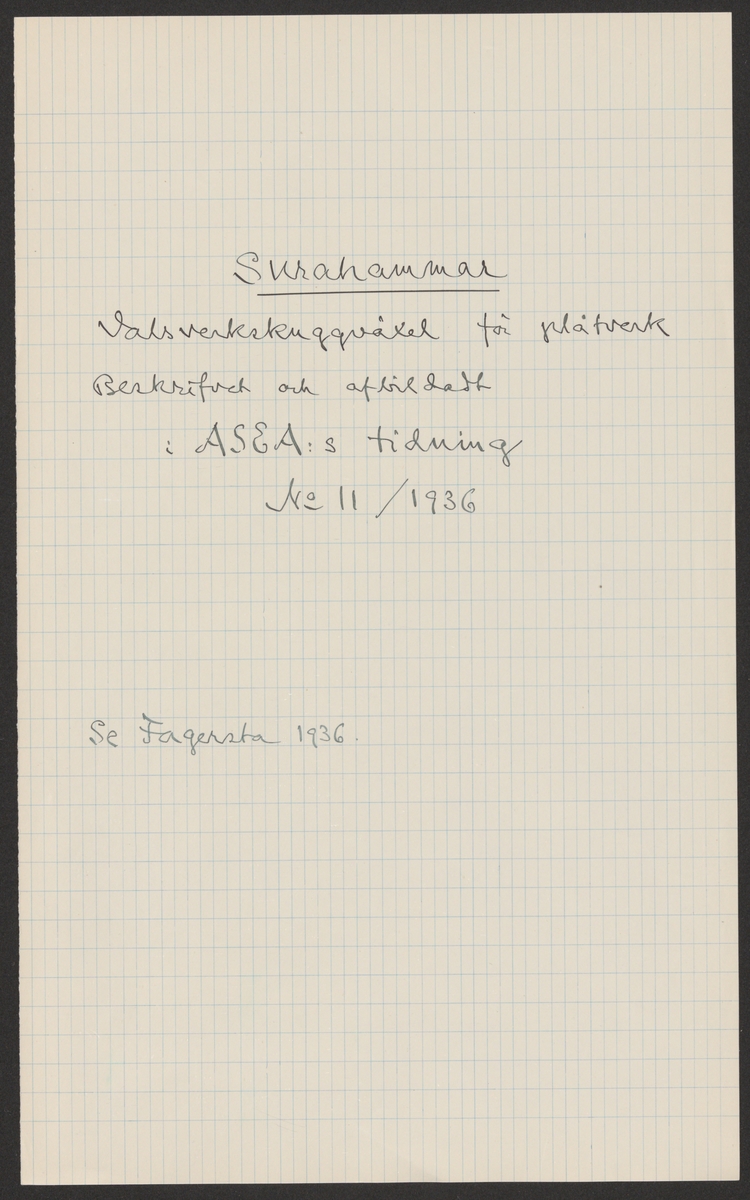 Surahammar
Valsverkskuggväxel för plåtverk
Beskrifvet och afbildadt
i ASEA:s tidning
No 11 / 1936
Se Fagersta 1936.